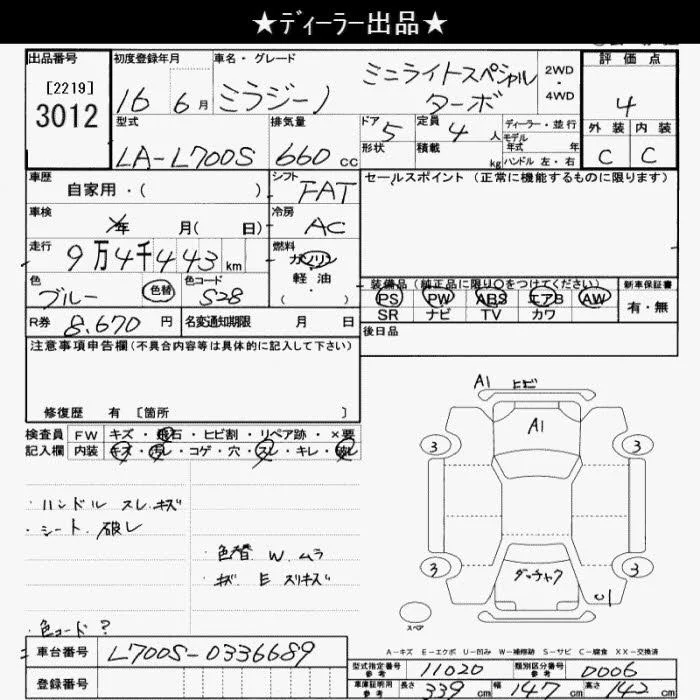 ★ディーラー出品★
出品番号 初度登録年月 車名・グレード 2WD・4WD 評価点
[2219]
3012
16 6月 ミラジーノ ミニライトスペシャル
ターボ
4
型式 排気量 ドア 定員 ディーラー・並行
5 4人 モデル年式 年
外装 内装
LA-L700S 660cc 形状 積載 kg ハンドル 左・右
C C
車歴 シフト セールスポイント(正常に機能するものに限ります)
自家用・( ) FAT
車検 年 月( 日) 冷房 AC
走行 9万4千443km 燃料 ガソリン
軽・油
( ・ )
色 ブルー 色替 色コード S28
装備品(純正品に限り〇をつけてください) 新車保証書
PS PW ABS エアB AW 有・無
SR ナビ TV カワ
R券 8,670円 名変通知期限 月 日 後日品
注意事項申告欄(不具合内容等は具体的に記入して下さい)
修復歴 有 [箇所 ]
検査員 FW キズ・飛石・ヒビ割・リペア跡・×要
記入欄 内装 キズ・汚レ・コゲ・穴・スレ・キレ・破レ
・ハンドル スレ.キズ
・シート.破レ
色替 W.ムラ
キズ E スリキズ
色コード?
A1 ヒビ
A1
3 3
3 3
ダッチャク
U1
スペア
A-キズ E-エクボ U-凹み W-補修跡 S-サビ C-腐食 XX-交換済
車台番号 L700S-0336689
登録番号
型式指定番号 参考 11020 類別区分番号 参考 0006
車庫証明用 参考 長さ 339cm 幅 147cm 高さ 142cm